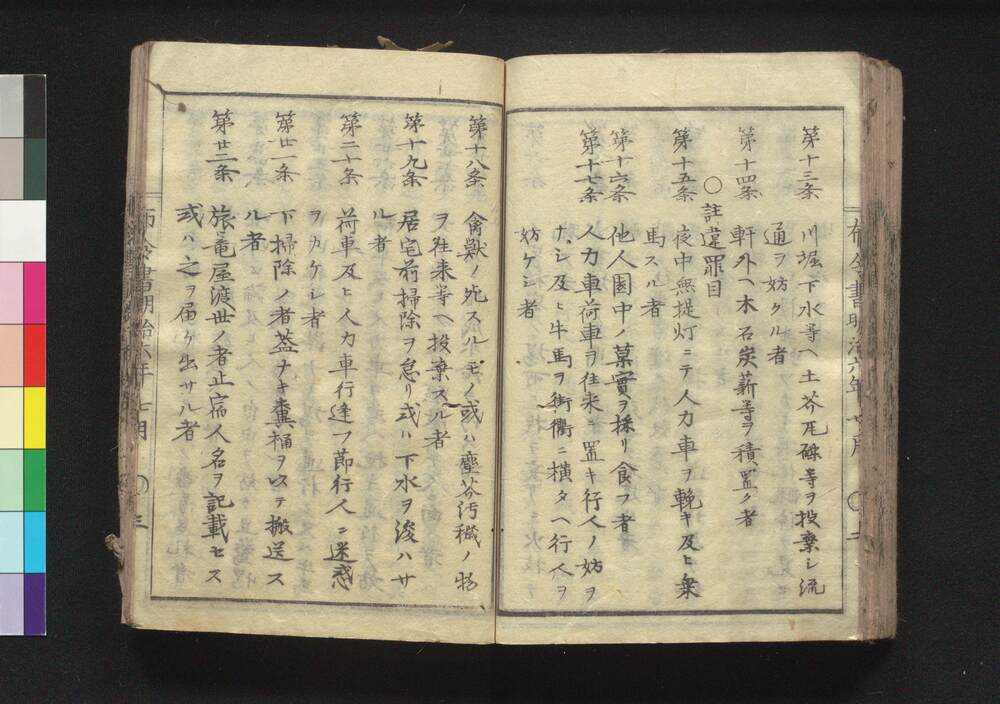 第十三条 川堀下水等ヘ土芥瓦礫等ヲ投棄シ流
通ヲ妨クル者
第十四条 軒外ヘ木石炭薪等ヲ積ミ置ク者
○註違罪目
第十五条 夜中無提灯ニテ人力車ヲ輓キ及ヒ乗
馬スル者
第十六条 他人園中ノ菓實ヲ採リ食フ者
第十七条 人力車荷車ヲ往来ニ置キ行人ノ妨ヲ
ナシ及ヒ牛馬ヲ街衢ニ横タヘ行人ヲ
妨ケシ者
第十八条 禽獣ノ死スルモノ或ハ塵芥汚穢ノ物
ヲ往来等ヘ投棄スル者
第十九条 居宅前掃除ヲ怠リ或ハ下水ヲ浚ハサ
ル者
第二十条 荷車及ヒ人力車行逢フ節行人ニ迷惑
ヲカケシ者
第廿一条 下掃除ノ者蓋ナキ糞桶ヲ以テ搬送ス
ル者
第廿二条 旅篭屋渡世ノ者止宿人名ヲ記載セス
或ハ之ヲ届ケ出サル者
布令書明治六年七月 ○三